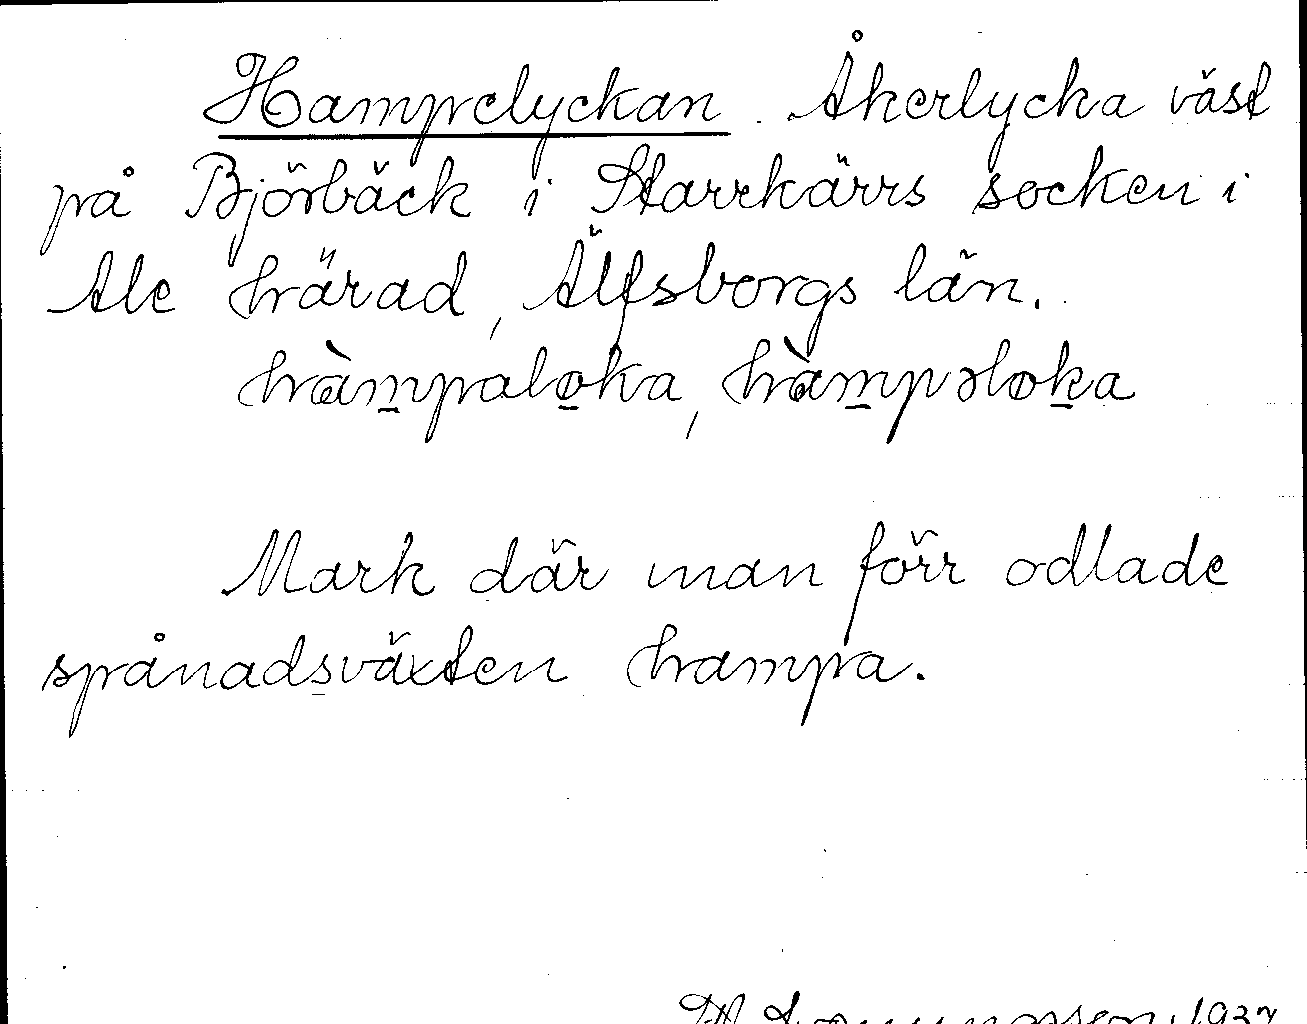 Hampelyckan. Åkerlycka väst
på Björbäck i Starrkärrs socken i
Ale härad, Älfsborgs län.
hàm̲palo̲ka, hàm̲pəlok̲a
Mark där man förr odlade
spånadsväxten hampa.